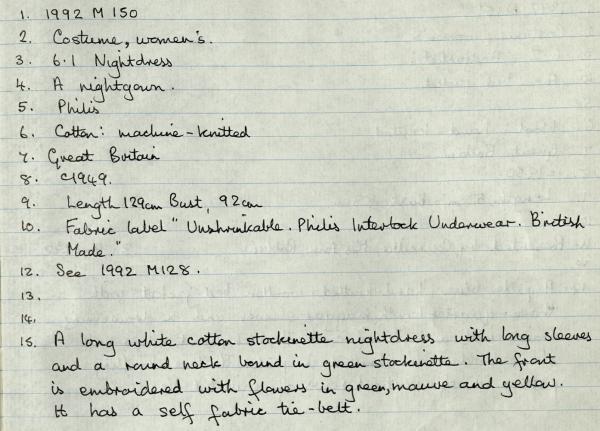 1. 1992 M 150
2. Costume, women's.
3. 6.1 Nightdress
4. A nightgown.
5. Philis
6. Cotton: machine-knitted
7. Great Britain
8. c1949.
9. Length 129cm Bust, 92cm
10. Fabric label "Unshrinkable. Philis Interlock Underwear. British
Made."
12. See 1992 M128.
13.
14.
15. A long white cotton stockinette nightdress with long sleeves
and a round neck bound in green stockinette. The front
is embroidered with flowers in green, mauve and yellow.
It has a self fabric tie-belt.